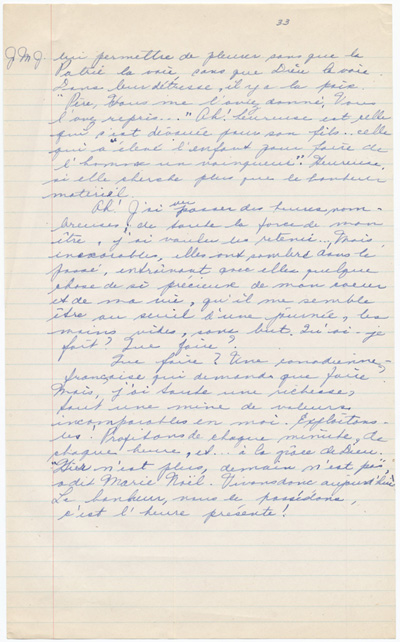 33
J.M.J. lui permettre de pleurer sans que la
Patrie la voie, sans que Dieu la voie.
Dans leur détresse, il y a la paix.
"Père, Vous me l'aviez donné, Vous
l'avez repris..." Ah! heureuse est celle
qui s'est dévouée pour son fils.. celle
qui a "élevé l'enfant pour faire de
l'homme un vainqueur". Heureuse,
si elle cherche plus que le bonheur
matériel.
Oh! J'ai vu passer des heures nom-
breuses; de toute la force de mon
être, j'ai voulu les retenir.. Mais
inexorables, elles ont sombré dans le
passé, entraînant avec elles quelque
chose de si précieux de mon coeur
et de ma vie, qu'il me semble
être au seuil d'une journée, les
mains vides, sans but. Qu'ai-je
fait? Que faire?
Que faire? Une canadienne-
française qui demande que faire.
Mais, j'ai toute une richesse,
tout une mine de valeurs
incomparables en moi. Exploitons-
les! Profitons de chaque minute, de
chaque heure, et... à la grâce de Dieu.
"Hier n'est plus, demain n'est pas",
a dit Marie Noël. Vivons donc aujourd'hui
Le bonheur, nous le possédons,
c'est l'heure présente!